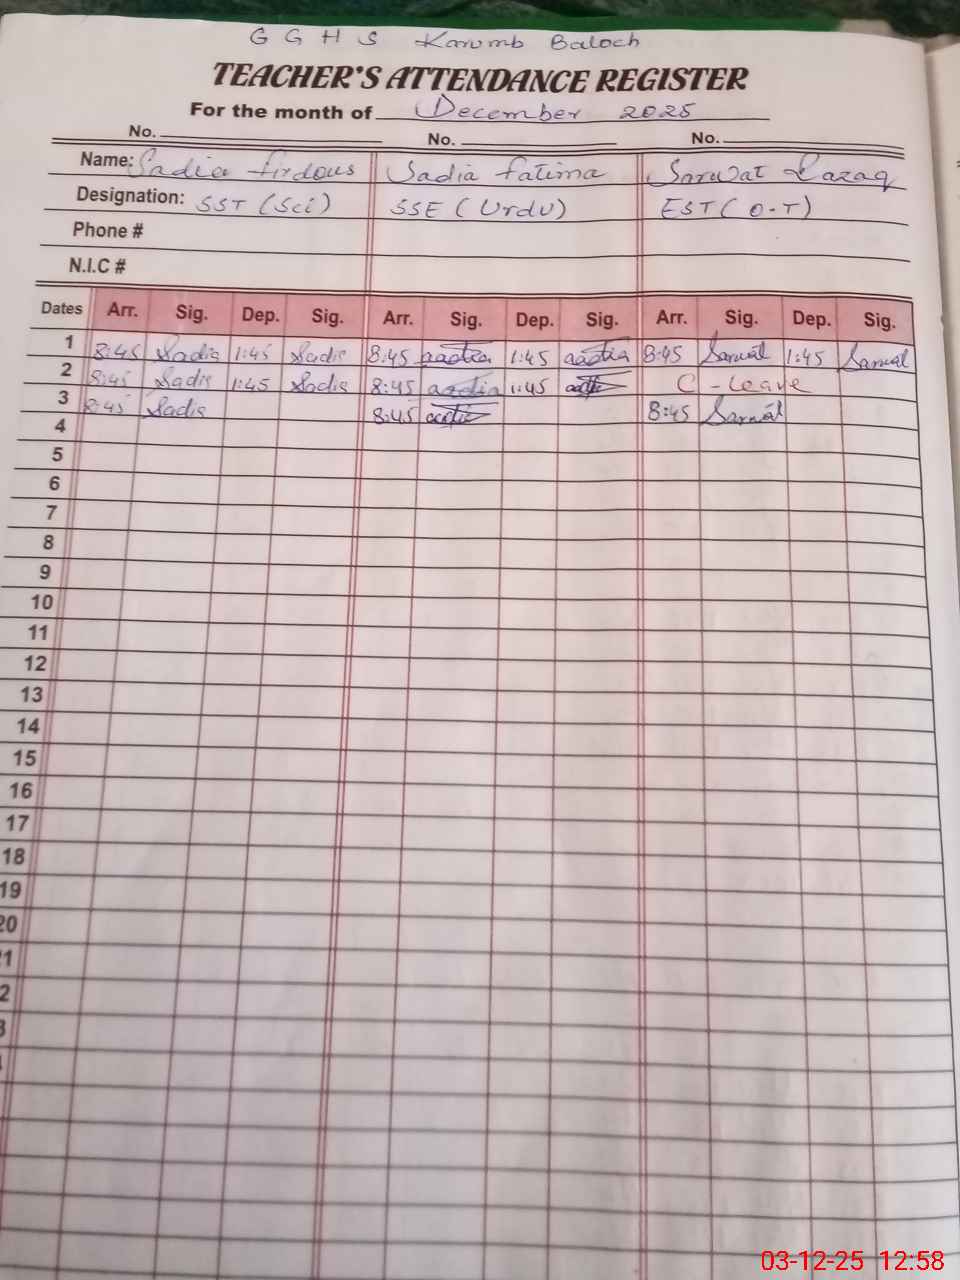 G G H S Karumb Baloch
TEACHER'S ATTENDANCE REGISTER
For the month of December 2025
No. No. No.
Name: Sadia firdous Sadia fatima Sarwat Razaq
Designation: SST (Sci) SSE (Urdu) EST (O-T)
Phone #
N.I.C #
Dates Arr. Sig. Dep. Sig. Arr. Sig. Dep. Sig. Arr. Sig. Dep. Sig.
1 8:45 Sadia 1:45 Sadia 8:45 1:45 8:45 Sarwat 1:45 Sarwat
2 8:45 Sadia 1:45 Sadia 8:45 1:45 C - Leave
3 8:45 Sadia 8:45 8:45 Sarwat
4
5
6
7
8
9
10
11
12
13
14
15
16
17
18
19
20
1
2
3
03-12-25 12:58